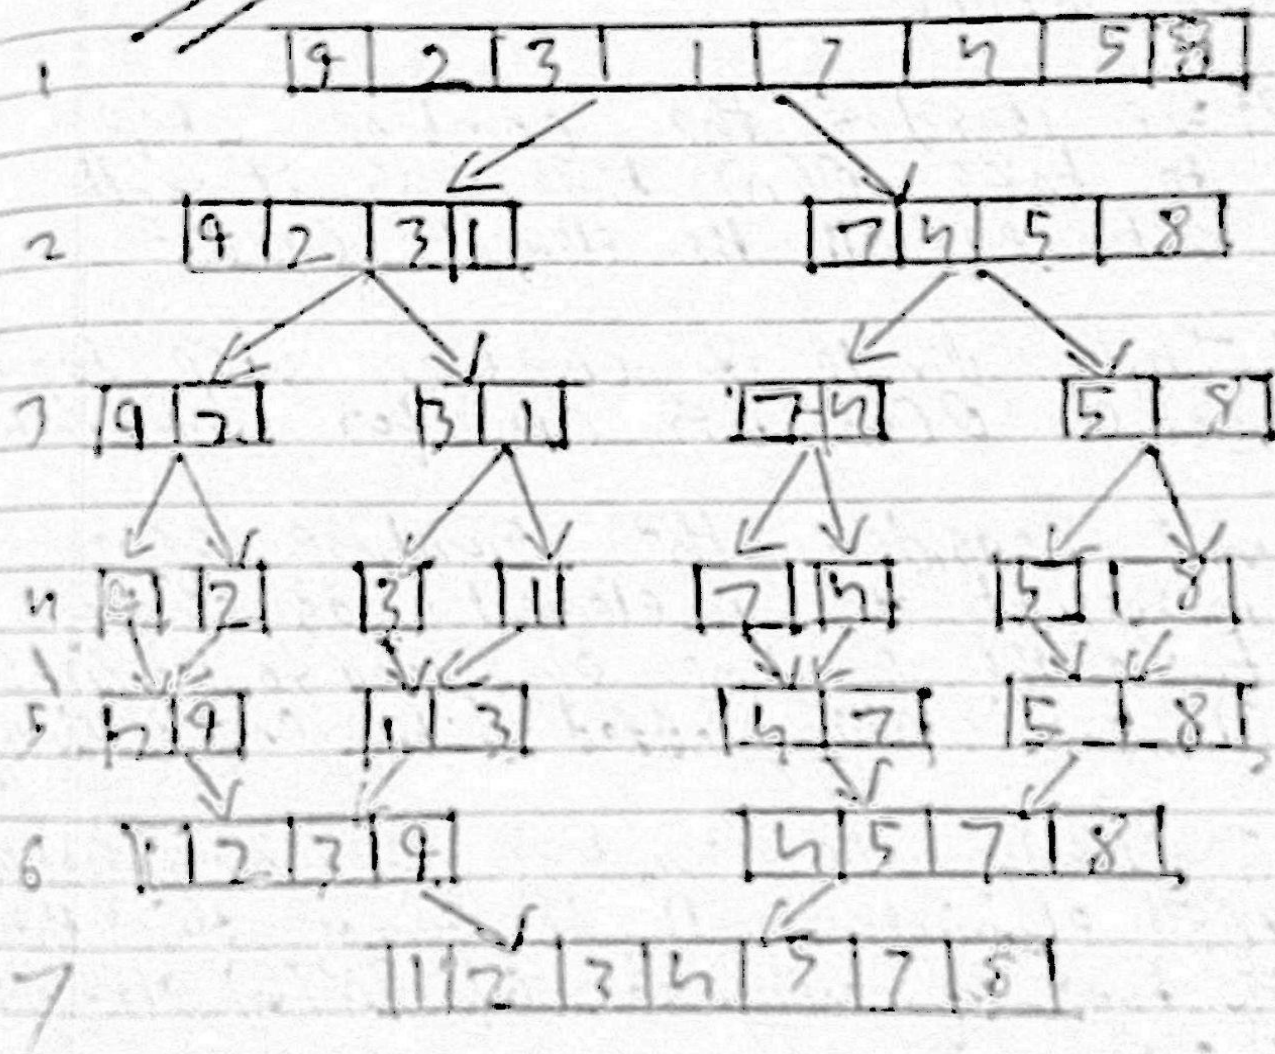 1 9 2 3 1 7 4 5
2 9 2 3 1 7 4 5 8
3 9 2 3 1 7 4 5 8
4 2 3 1 7 4 5 8
5 9 1 3 4 7 5 8
6 1 2 3 9 4 5 7 8
7 1 2 3 4 5 7 8